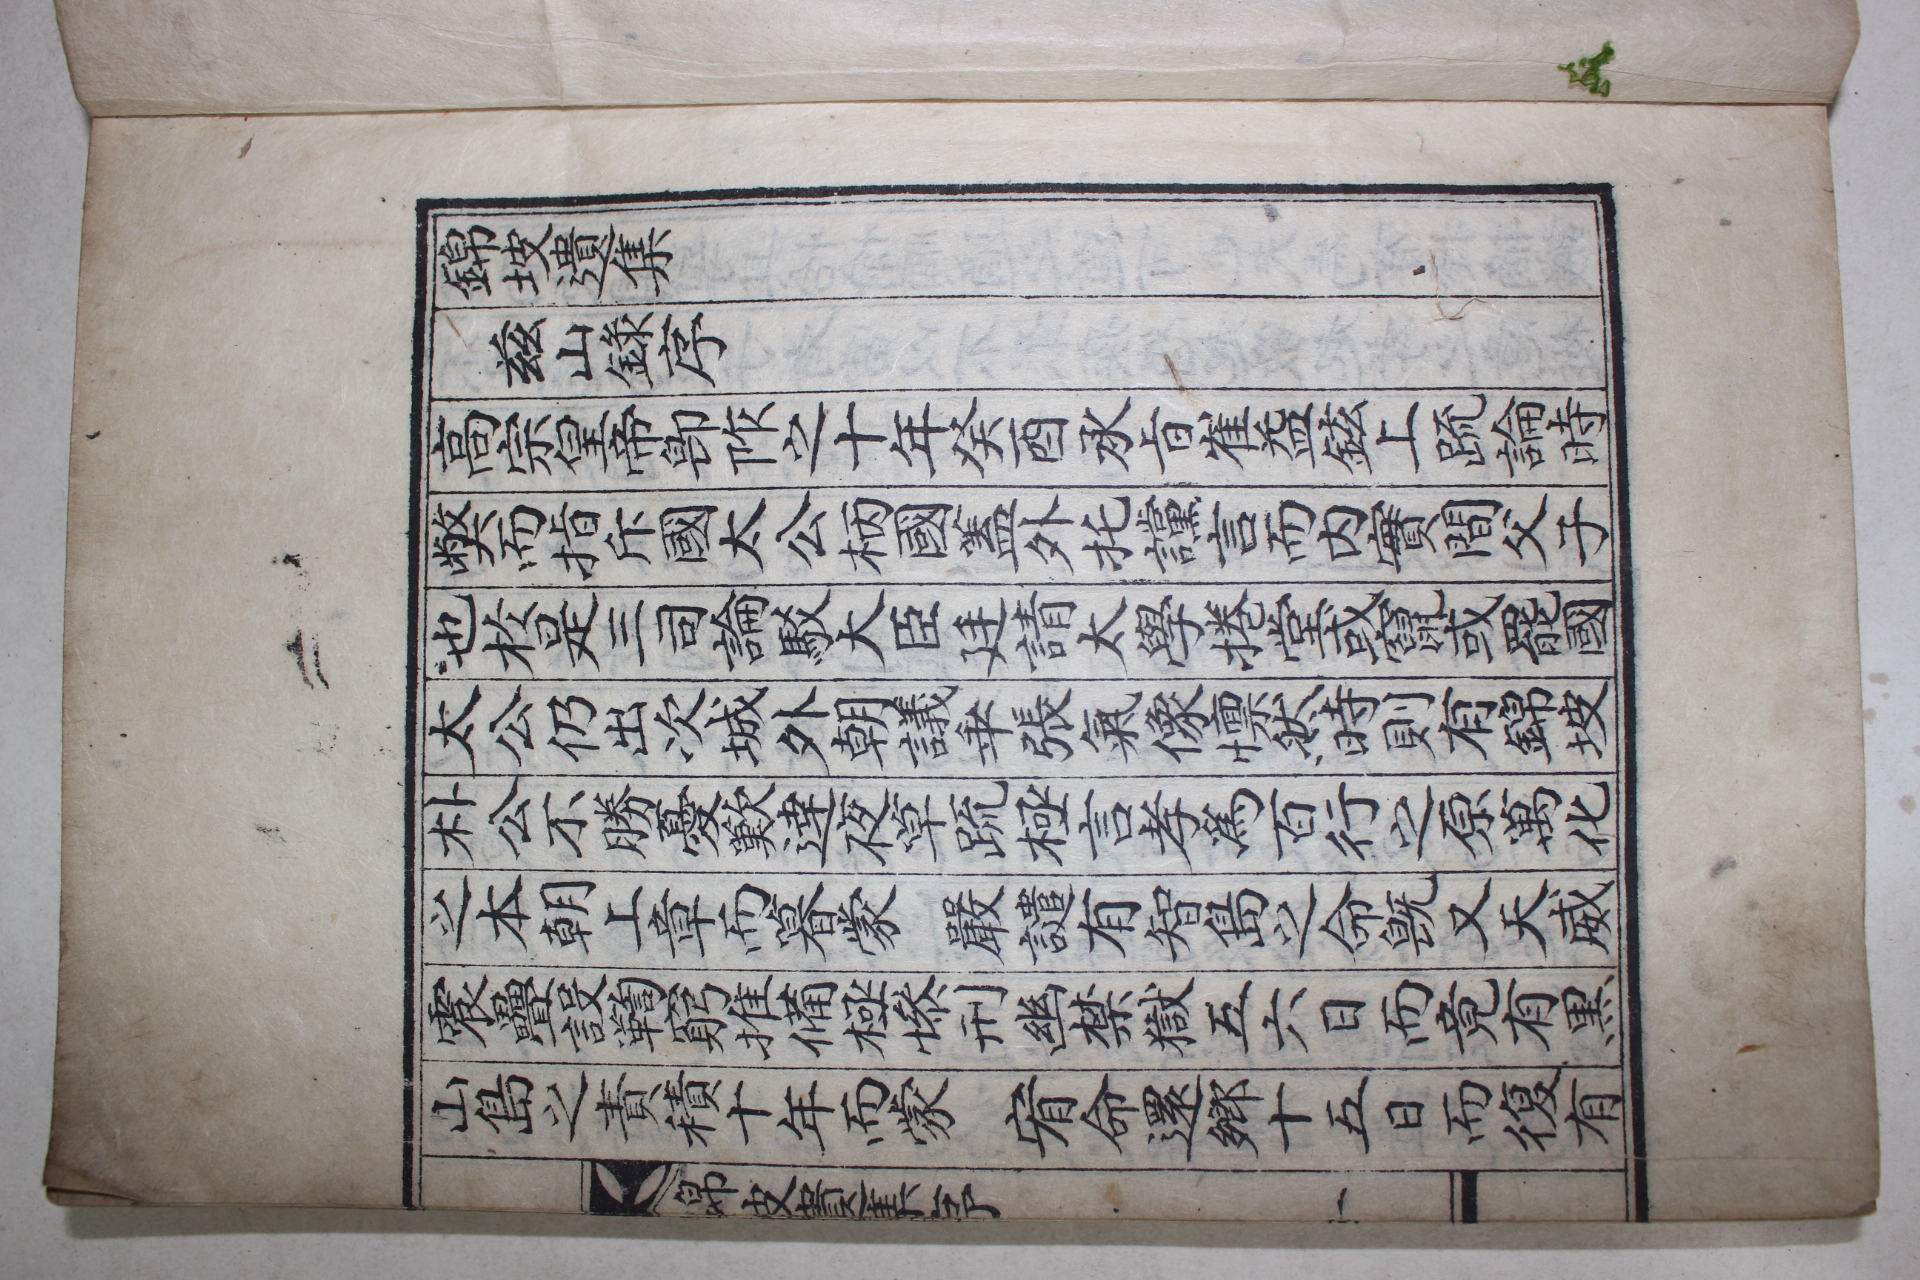 錦坡遺集
玆山錄序
高宗皇帝卽阼之十年癸酉承旨崔益鉉上疏論時
弊而指斥國太公柄國蓋外托讜言而內實間父子
也於是三司論駁大臣廷請太學捲堂或竄或罷國
太公仍出次城外朝議乖張氣像懍然時則有錦坡
朴公不勝憂歎達夜草疏極言孝爲百行之原萬化
之本朝上章而暮蒙 嚴譴有智島之命旣又天威
震疊設鞫窮推備極慘刑幽禁獄五六日而竟有黑
山島之責積十年而蒙 宥命還鄉十五日而復有
錦坡遺集序 一